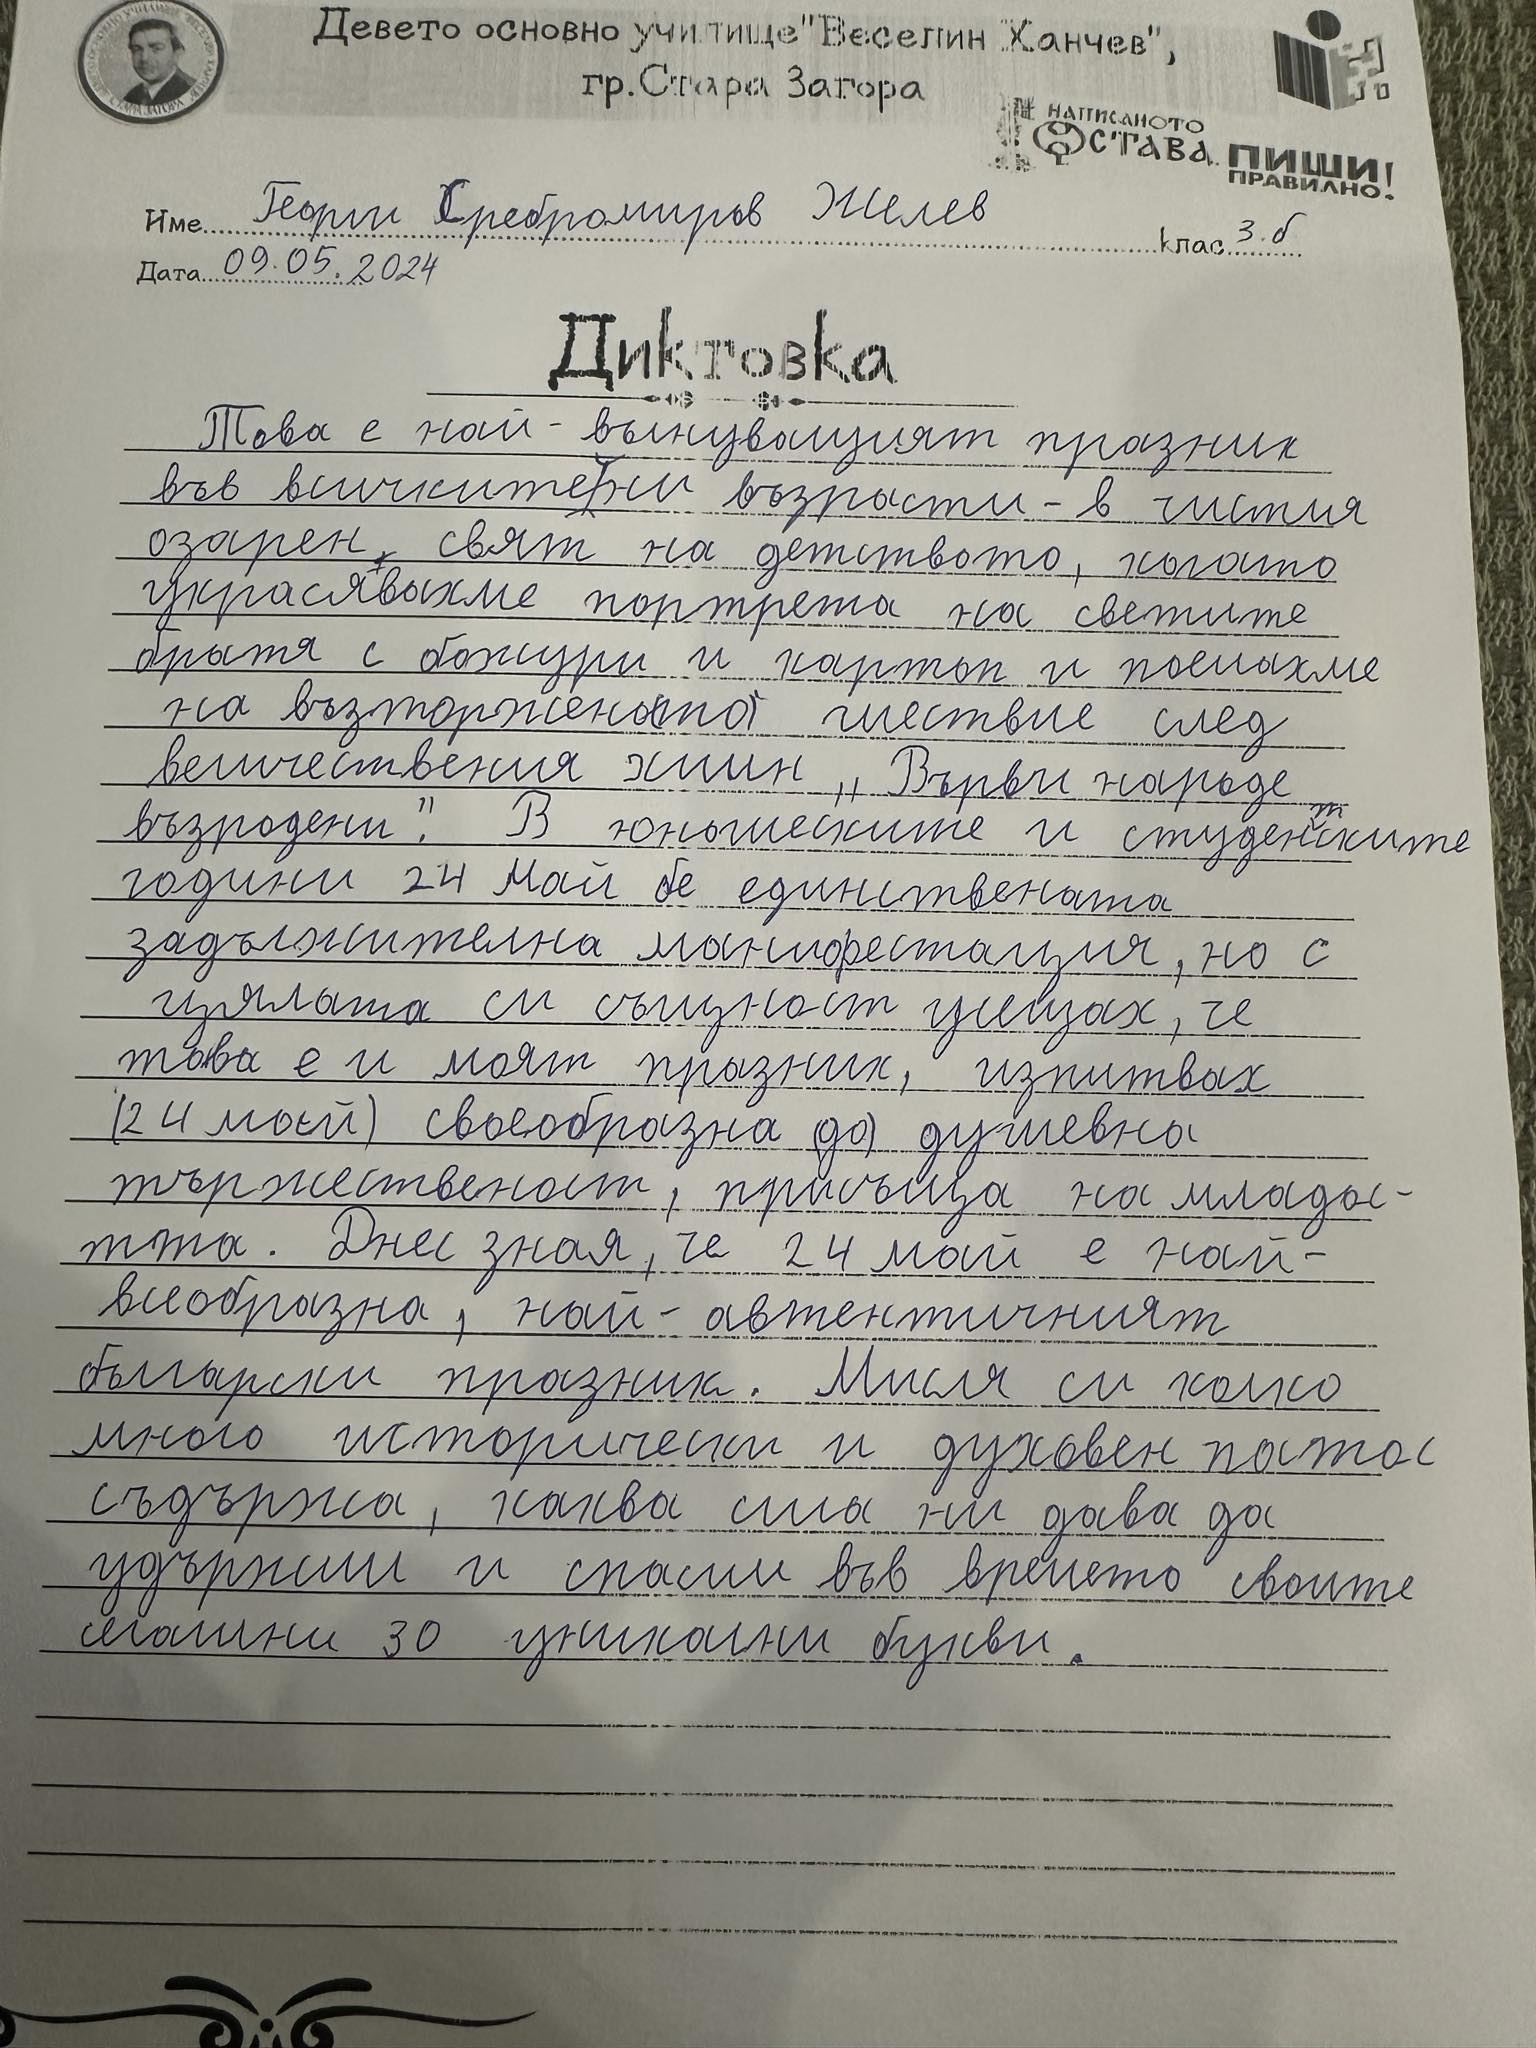 Девето основно училище "Веселин Ханчев",
гр. Стара Загора
НАПИСАНОТО
ОСТАВА. ПИШИ
ПРАВИЛНО!
Име Георги Сребромиров Желев клас 3.б
Дата 09.05.2024
Диктовка
Това е най-вълнуващият празник
във всичките ни възрасти - в чистия
озарен, свят на детството, когато
украсявахме портрета на светите
братя с божури и картоп и поемахме
на възторжено(то) шествие след
величествения химн „Върви народе
възродени". В юношеските и студентските
години 24 Май бе единствената
задължителна манифестация, но с
цялата си същност усещах, че
това е и моят празник, изпитвах
(24 май) своеобразна (да) душевна
тържественост, присъща на младос-
тта. Днес зная, че 24 май е най-
всеобразна, най-автентичният
български празник. Мисля си колко
много исторически и духовен патос
съдържа, каква сила ни дава да
удържим и спасим във времето своите
сегашни 30 уникални букви.